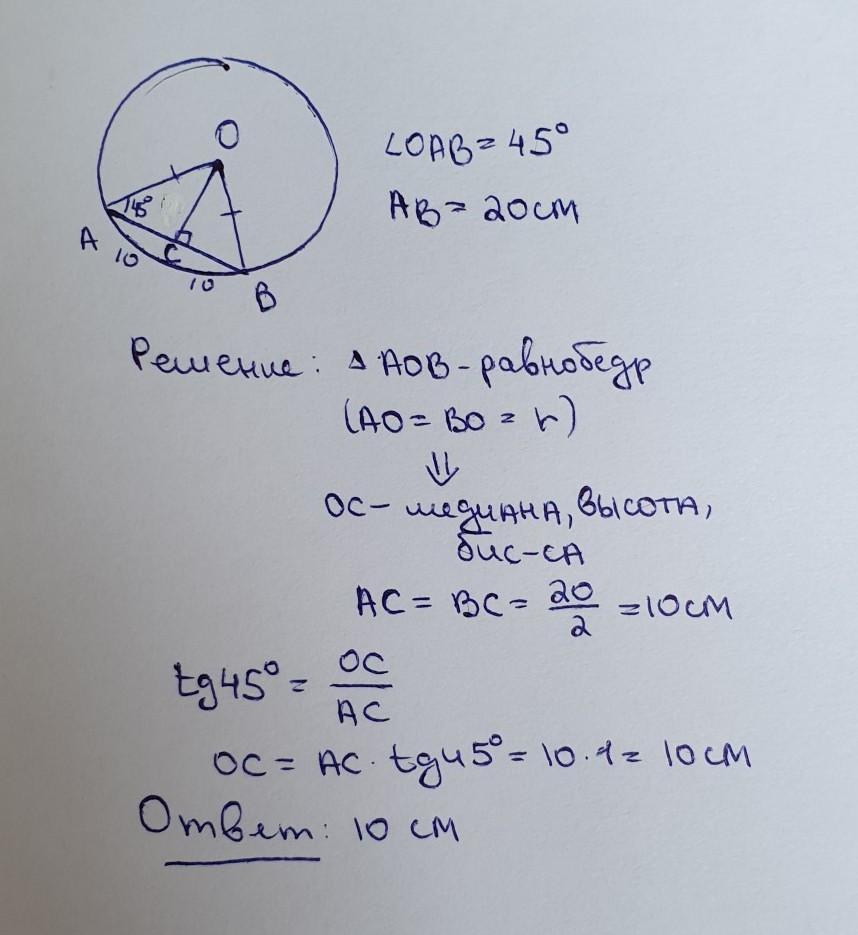 O
45°
A
C
10
10
B
∠OAB = 45°
AB = 20 см
Решение: △ AOB - равнобедр
(AO = BO = r)
⇓
OC - медиана, высота,
бис-са
AC = BC = 20/2 = 10 см
tg45° = OC/AC
OC = AC · tg45° = 10 · 1 = 10 см
Ответ: 10 см